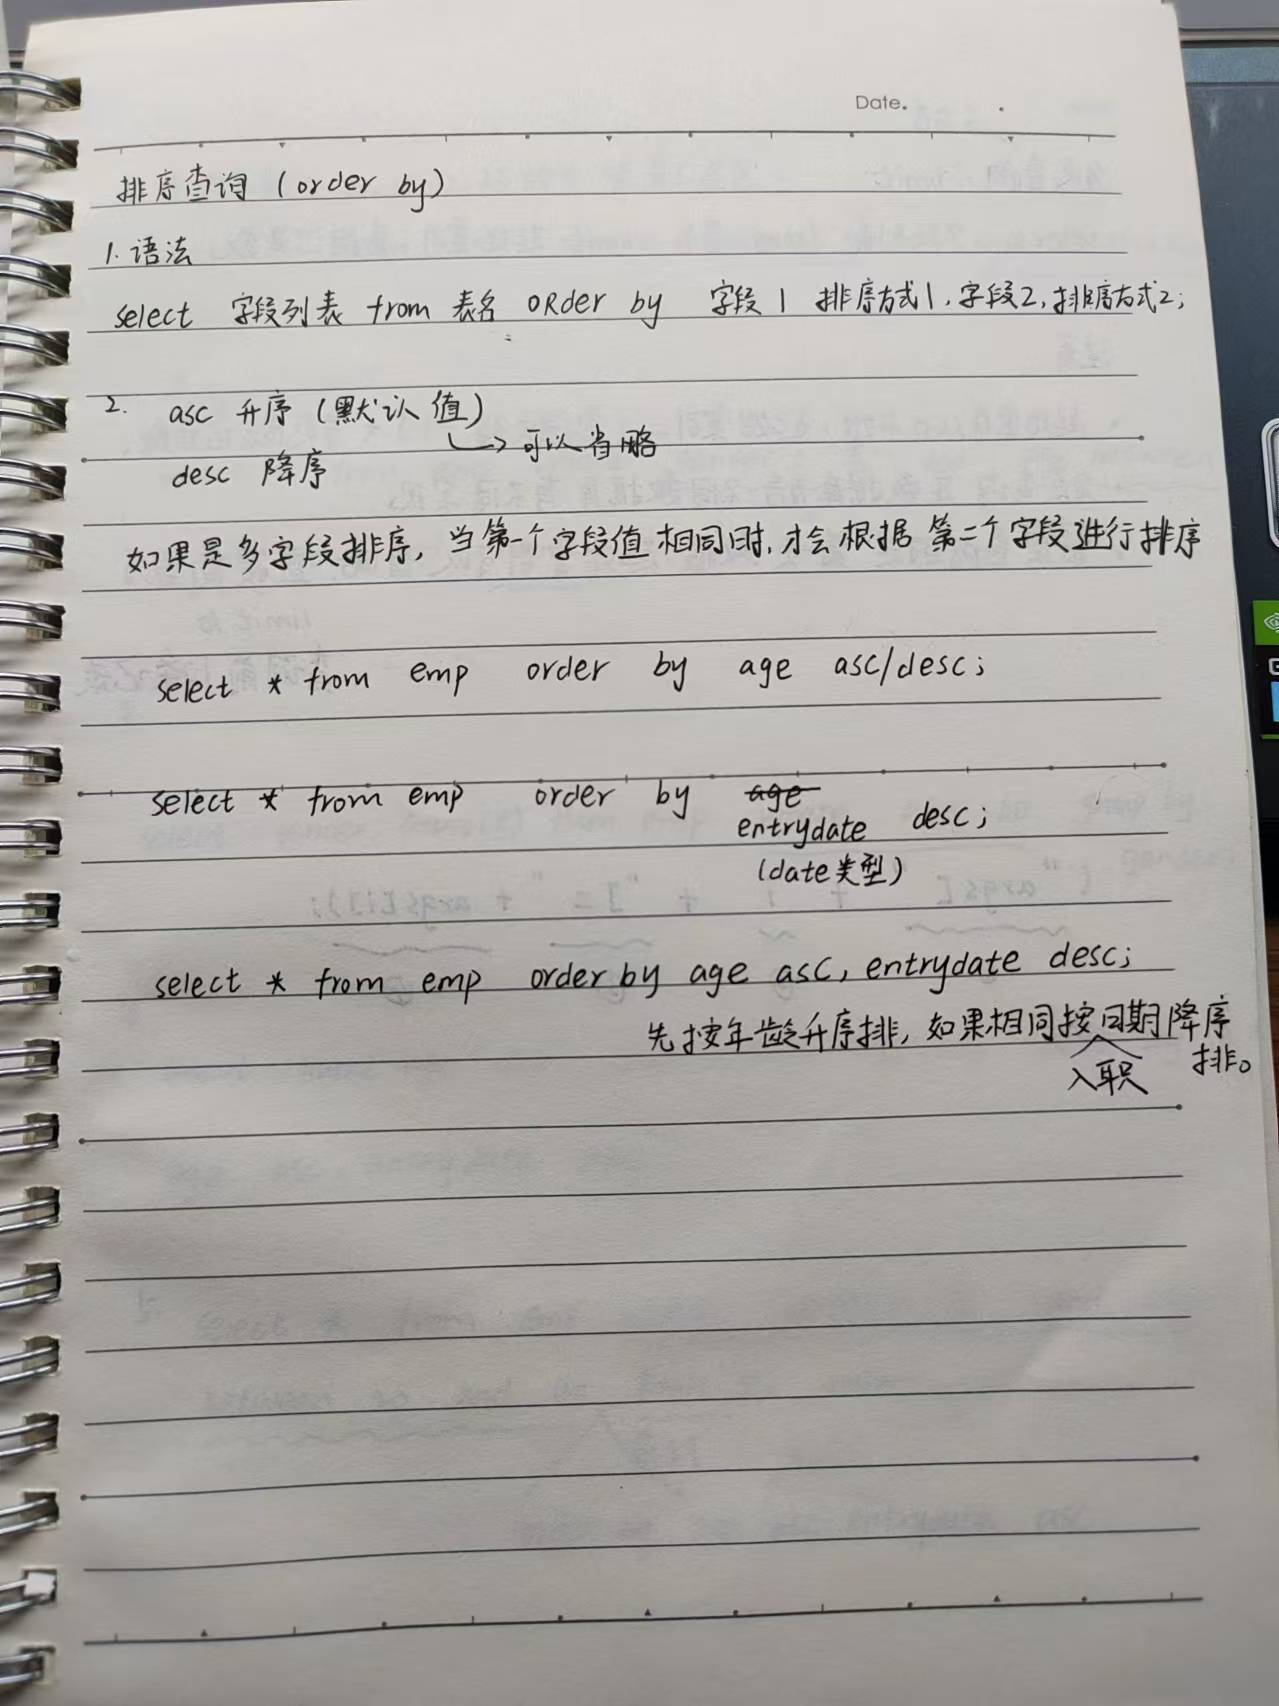 Date.
排序查询 (order by)
1. 语法
select 字段列表 from 表名 ORder by 字段1 排序方式1, 字段2, 排序方式2;
2. asc 升序 (默认值)
↳ 可以省略
desc 降序
如果是多字段排序, 当第一个字段值相同时, 才会根据第二个字段进行排序
select * from emp order by age asc/desc;
select * from emp order by age
entrydate desc;
(date类型)
select * from emp order by age asc, entrydate desc;
先按年龄升序排, 如果相同按入职日期降序
排。